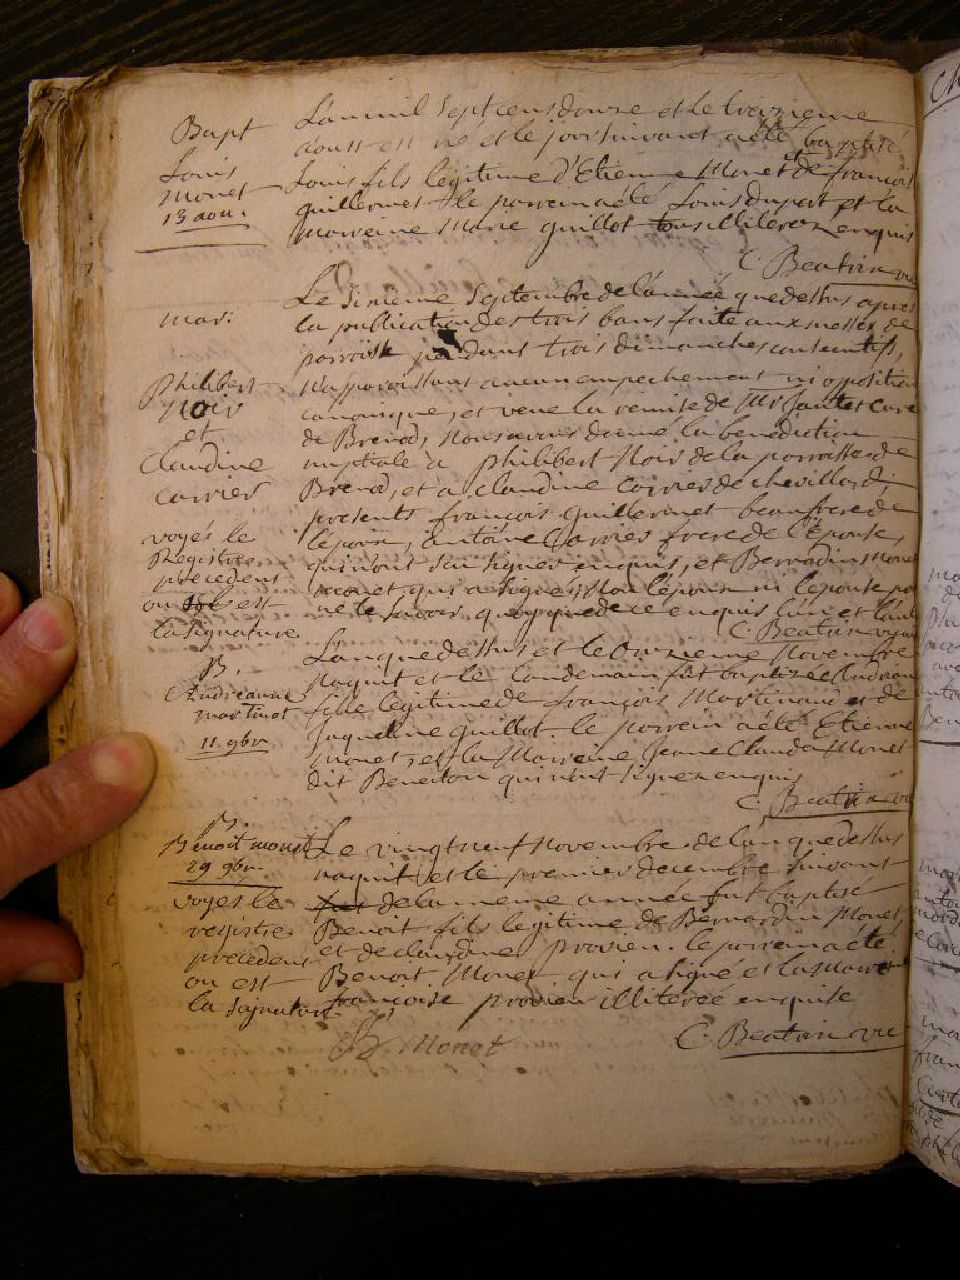 Bapt
Louis
Monet
13 aou.
L'an mil sept cens douze et le treizieme
d'oust est né et le jour suivant a été baptisé
Louis fils légitime d'Etienne Monet et de françoise
guillermet le parrein a élé Louis dupart et la
marreine Marie guillot tous illiteres enquis
C. Beatrix vic
mari.
philibert
Noir
et
Claudine
carrier
voyés le
Registre
précédent
ou est
la signature
Le sixieme septembre de l'année que dessus après
la publication des trois bans faite aux messes de
parroisse pendant trois dimanches consecutifs,
n'apparoissant aucun empechement ni opposition
canonique, et veue la remise de Mr curé
de Brenod, nous avons donné la benediction
nuptiale à philibert Noir de la parroisse de
Brenod, et a claudine Carrier de chevillard,
presents françois guillermet beaufrere de
l'epoux, antoine Carrier frere de l'épouse,
qui n'ont su signer enquis, et Bernardin Monet
qui a signé, Non l'époux ni l'epouse pour
ne le savoir, quoyque de ce enquis l'un et l'autre
C. Beatrix vic
B.
Andréanne
martinot
11. 9br.
L'an que dessus et le onzieme Novembre
naquit et le landemain fut baptizée Andreanne
fille legitime de françois Martinand et de
Jaqueline guillot. le parrein a élé Etienne
monet, et la Marreine Jeane Claude Monet
dit Beneiton qui n'ont signer enquis
C. Beatrix vic
B.
Benoit monet
29 9br.
voyes le
registre
precedent
ou est
la signature
Le vingt neuf Novembre de l'an que dessus
naquit, et le premier decembre suivant
de la meme année fut baptisé
Benoit fils legitime de Bernardin Monet,
et de claudine provien. le parrein a élé
Benoit Monet qui a signé et la Marreine
françoise provien illiterée enquise
B Monet
C. Beatrix vic